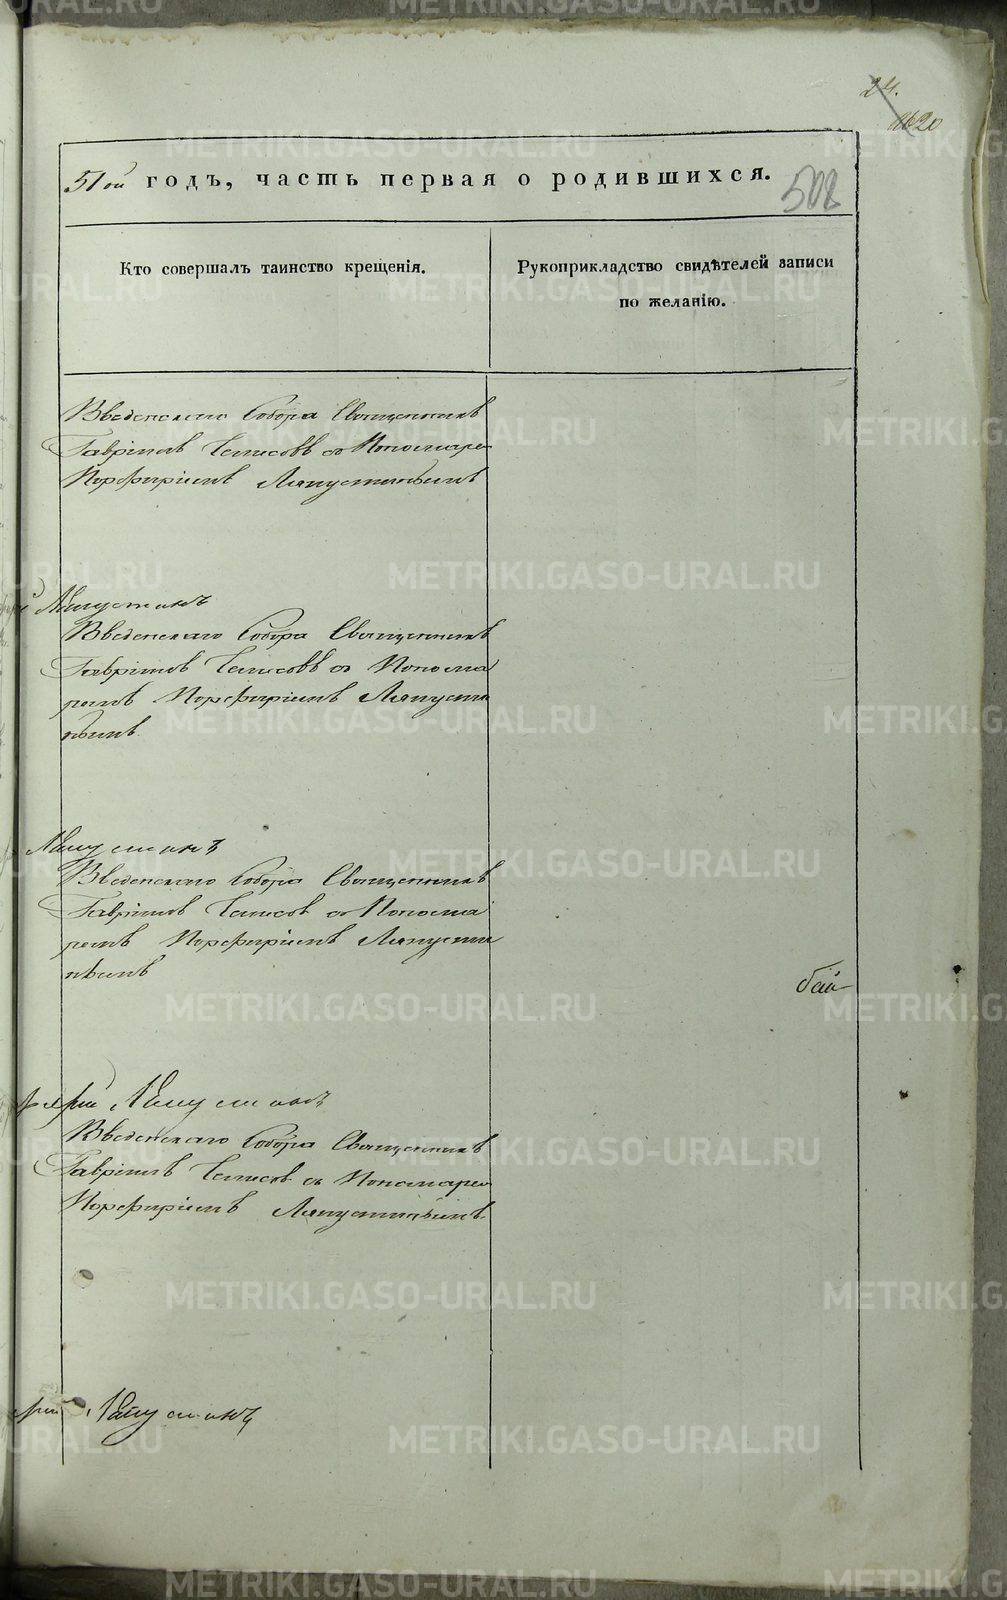 24.
20
51ой годъ, часть первая о родившихся.
508
Кто совершалъ таинство крещенія.
Рукоприкладство свидѣтелей записи
по желанію.
Введенскаго Собора Священникъ
Гавріилъ съ Пономаре
Порфиріемъ Ляпустинымъ
Ляпустинъ
Введенскаго Собора Священникъ
Гавріилъ съ Понома
ремъ Порфиріемъ Ляпусти
нымъ
Ляпустинъ
Введенскаго Собора Священникъ
Гавріилъ съ Понома
ремъ Порфиріемъ Ляпусти
нымъ
бай
Ляпустинъ
Введенскаго Собора Священникъ
Гавріилъ съ Пономаре
Порфиріемъ Ляпустинымъ
Ляпустинъ
METRIKI.GASO-URAL.RU